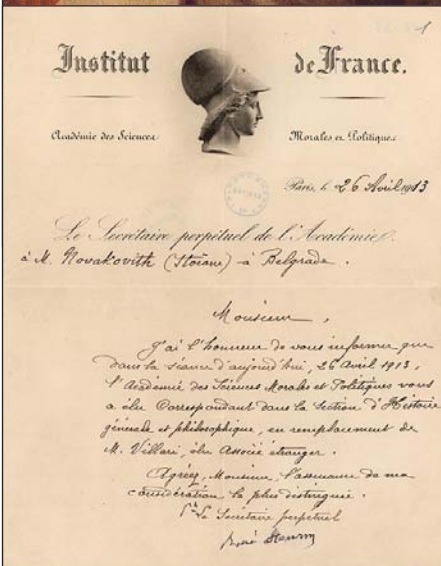 Institut de France.
Académie des Sciences Morales et Politiques
Paris, le 26 Avril 1913
Le Secrétaire perpétuel de l'Académie
à M. Novakovith (Stoïane) à Belgrade.
Monsieur,
J'ai l'honneur de vous informer que
dans la séance d'aujourd'hui, 26 avril 1913,
l'Académie des Sciences Morales et Politiques vous
a élu Correspondant dans la section d'Histoire
générale et philosophique, en remplacement de
M. Villari, élu Associé étranger.
Agréez, Monsieur, l'assurance de ma
considération la plus distinguée.
Le Secrétaire perpétuel
René Stourm